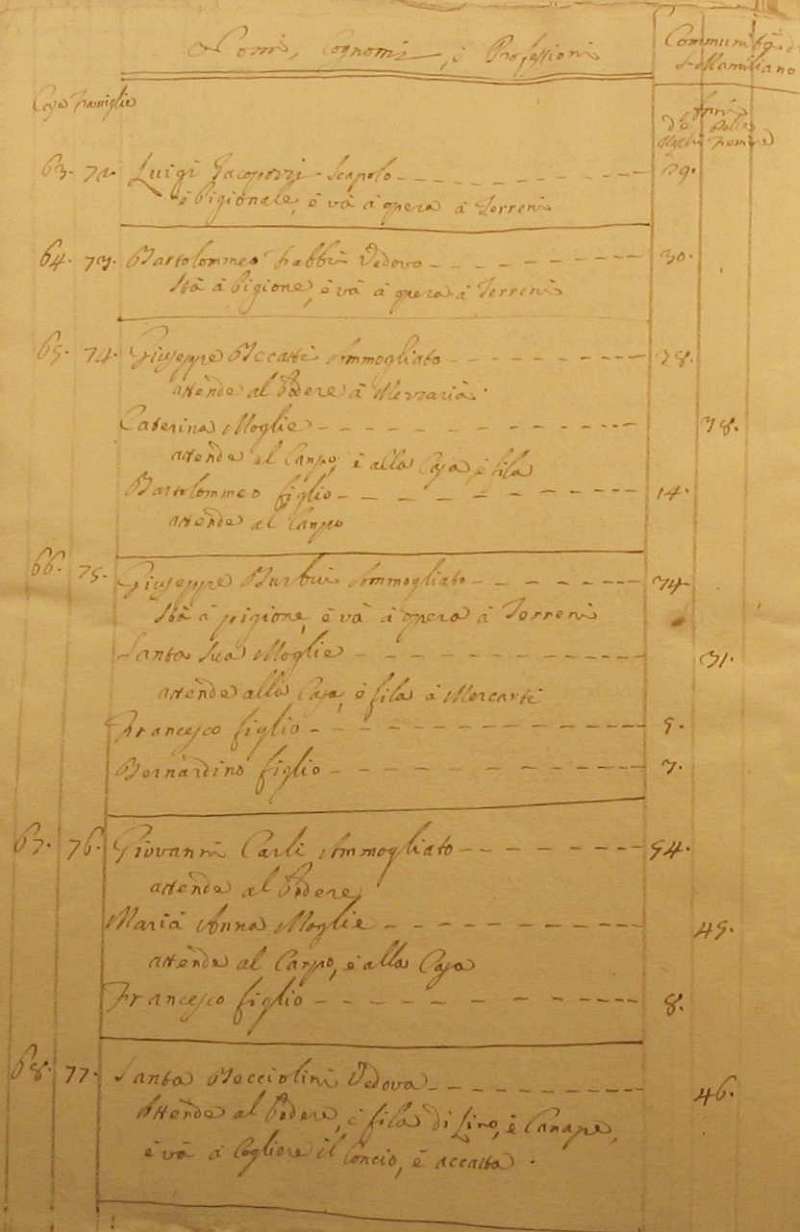 Nomi, Cognomi, è Professioni
Communità
S. Mamiliano
Case Famiglie
Anni
degl' Delle
Femine
63. 72. Luigi Scapolo 29.
è Pigionale, è và à opera à Terreni
64. 73. Bartolommeo Vedovo 30.
Stà à Pigione, è và à opera à Terreni
65. 74. Giuseppe Ammogliato
attende al Podere à Mezzaria.
Caterina Moglie
attende al Campo, è alla Casa, è fila
Bartolommeo figlio 14.
attende al Campo
66. 75. Giuseppe Ammogliato 34
Stà à pigione, è và à opera à Terreni
Santa Sua Moglie 31.
attende alla Casa, è fila à
Francesco figlio 5.
Bernardino figlio 3.
67. 76. Giovanni Carli Ammogliato 54.
attende al Podere
Maria Anna Moglie 45.
attende al Campo, è alla Casa
Francesco figlio 8.
68. 77. Santa Vedova 46.
Attende al Podere, è fila di Lino, è Canape,
è và à Cogliere il Concio, è accatta.